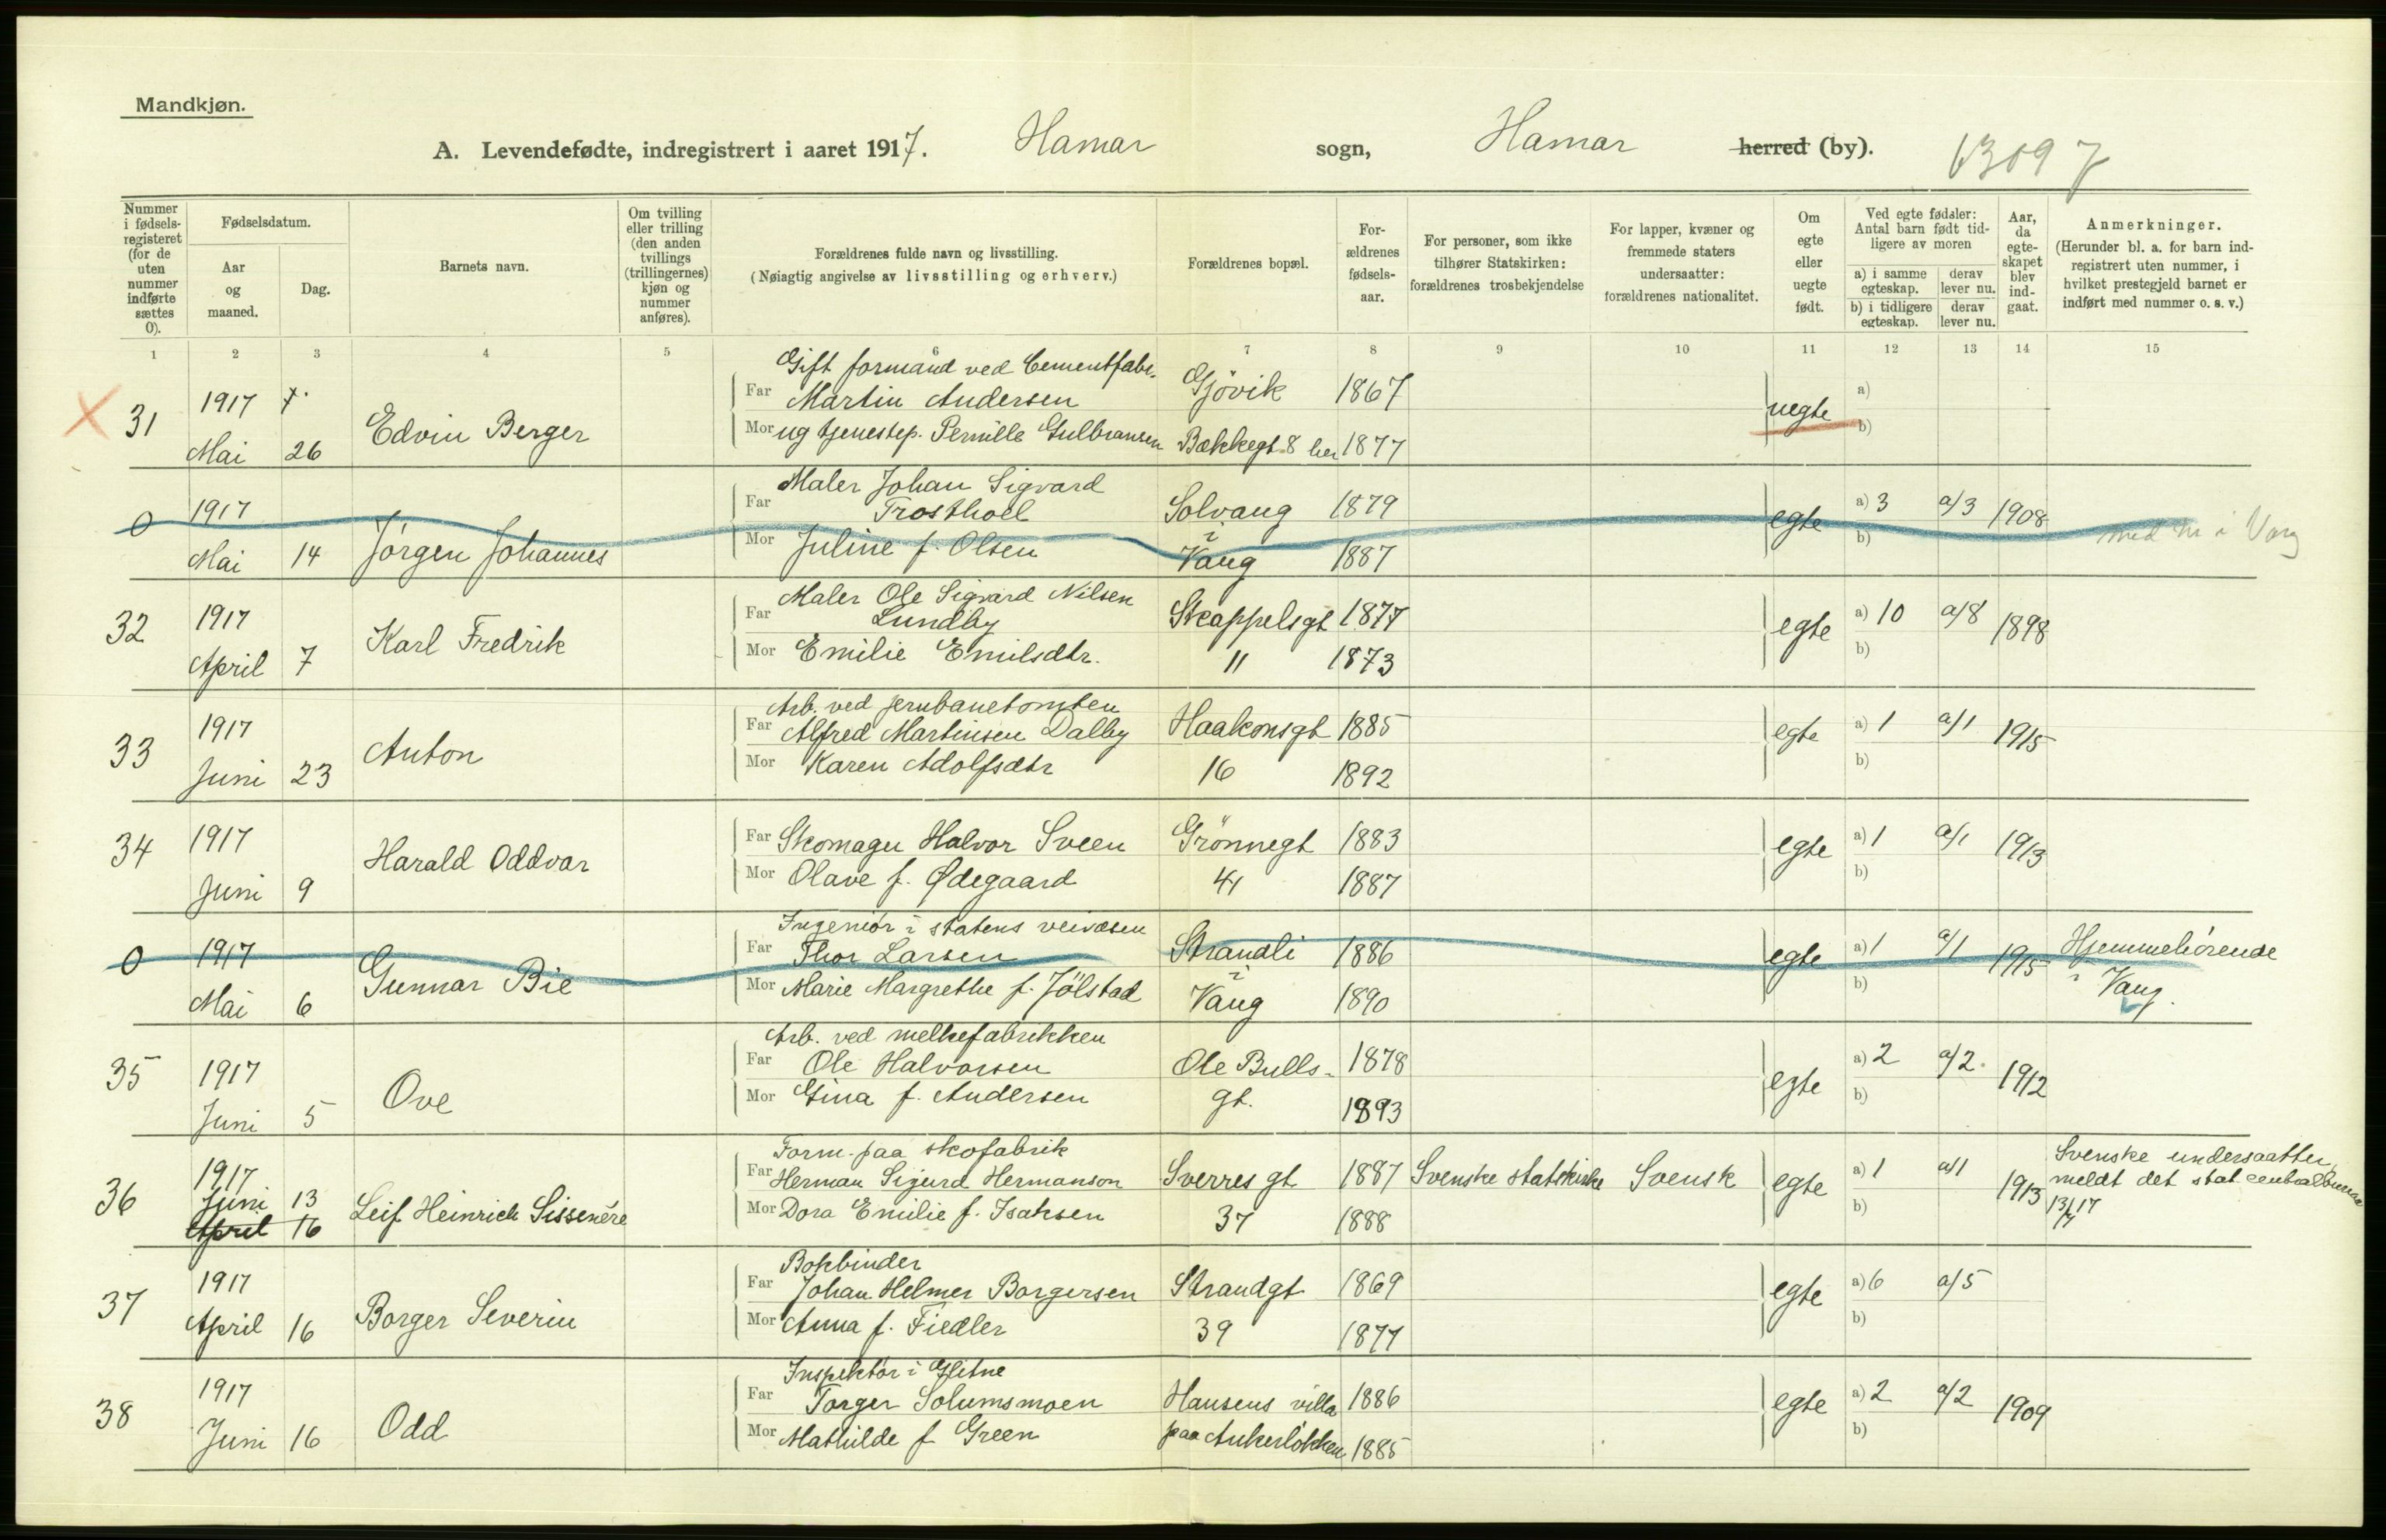 Mandkjøn.
A. Levendefødte, indregistrert i aaret 1917. Hamar sogn, Hamar herred (by). 63097
Nummer i fødsels-registeret (for de uten nummer indførte sættes 0).
Fødselsdatum.
Aar og maaned.
Dag.
Barnets navn.
Om tvilling eller trilling (den anden tvillings (trillingernes) kjøn og nummer anføres).
Forældrenes fulde navn og livsstilling.
(Nøiagtig angivelse av livsstilling og erhverv.)
Forældrenes bopæl.
For-ældrenes fødsels-aar.
For personer, som ikke tilhører Statskirken: forældrenes trosbekjendelse
For lapper, kvæner og fremmede staters undersaatter: forældrenes nationalitet.
Om egte eller uegte født.
Ved egte fødsler: Antal barn født tid-ligere av moren
a) i samme egteskap.
derav lever nu.
b) i tidligere egteskap.
derav lever nu.
Aar, da egte-skapet blev ind-gaat.
Anmerkninger.
(Herunder bl. a. for barn ind-registrert uten nummer, i hvilket prestegjeld barnet er indført med nummer o. s. v.)
1 2 3 4 5 6 7 8 9 10 11 12 13 14 15
Gift formand ved Cementfabr.
31 1917 Edvin Berger Far Martin Andersen Gjövik 1867 uegte a)
Mai 26 Mor ug tjenestep. Pernille Gulbransen Bækkegt 8 her 1877 b)
Maler Johan Sigvard
0 1917 Jörgen Johannes Far Trosthoel Solvang 1879 egte a) 3 a/3 1908 med nr i Vang
Mai 14 Mor Juline f. Olsen i Vang 1887 b)
Maler Ole Sigvard Nilsen
32 1917 Karl Fredrik Far Lundby Skappelsgt 1877 egte a) 10 a/8 1898
April 7 Mor Emilie Emilsdtr. 11 1873 b)
Arb. ved jernbanetomten
33 1917 Anton Far Alfred Martinsen Dalby Haakonsgt 1885 egte a) 1 a/1 1915
Juni 23 Mor Karen Adolfsdtr 16 1892 b)
34 1917 Harald Oddvar Far Skomager Halvor Sveen Grönnegt 1883 egte a) 1 a/1 1913
Juni 9 Mor Olave f. Ødegaard 41 1887 b)
Ingeniör i statens veivæsen
0 1917 Gunnar Bie Far Thor Larsen Strandli 1886 egte a) 1 a/1 1915 Hjemmehörende
Mai 6 Mor Marie Margrethe f. Jölstad i Vang 1890 b) i Vang.
Arb. ved melkefabrikken
35 1917 Ove Far Ole Halvorsen Ole Bulls- 1878 egte a) 2 a/2. 1912
Juni 5 Mor Gina f. Andersen gt. 1893 b)
Form. paa skofabrik
36 1917 Leif Heinrich Far Herman Sigurd Hermanson Sverres gt 1887 Svenske statskirke Svensk egte a) 1 a/1 1913 Svenske undersaatter,
Juni 13 meldt det stat centralbureau
April 16 Mor Dora Emilie f. Isaksen 37 1888 b) 13/7 17
Bokbinder
37 1917 Borger Severin Far Johan Helmer Borgersen Strandgt 1869 egte a) 6 a/5
April 16 Mor Anna f. Fiedler 39 1877 b)
Inspektör i Glitne
38 1917 Odd Far Torger Solumsmoen Hansens villa 1886 egte a) 2 a/2 1909
Juni 16 Mor Mathilde f Green paa Ankerlökken 1885 b)